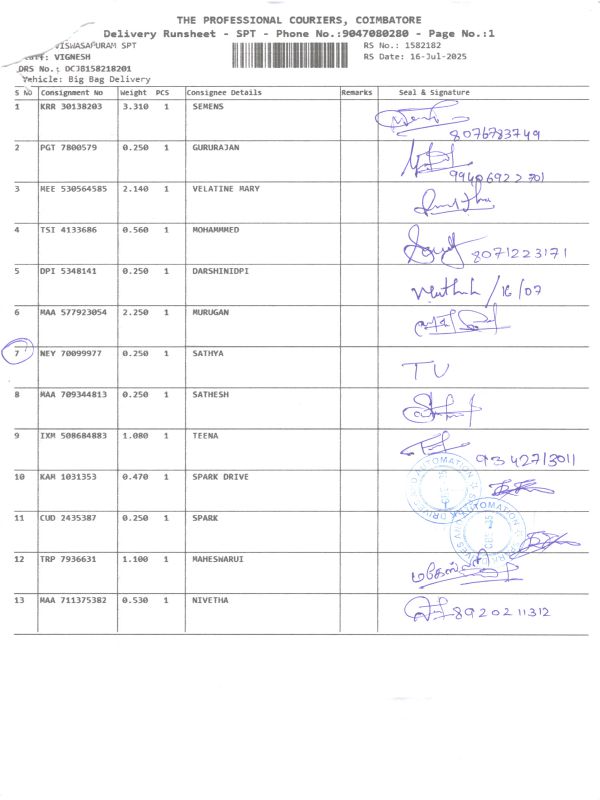 THE PROFESSIONAL COURIERS, COIMBATORE
Delivery Runsheet - SPT - Phone No.:9047080280 - Page No.:1
VISWASAPURAM SPT RS No.: 1582182
VIGNESH RS Date: 16-Jul-2025
DRS No.: DCJB158218201
Vehicle: Big Bag Delivery
S NO Consignment No Weight PCS Consignee Details Remarks Seal & Signature
1 KRR 30138203 3.310 1 SEMENS
8076783749
2 PGT 7800579 0.250 1 GURURAJAN
99406922701
3 MEE 530564585 2.140 1 VELATINE MARY
4 TSI 4133686 0.560 1 MOHAMMMED
8071223171
5 DPI 5348141 0.250 1 DARSHINIDPI
/16/07
6 MAA 577923054 2.250 1 MURUGAN
7 NEY 70099977 0.250 1 SATHYA
TV
8 MAA 709344813 0.250 1 SATHESH
9 IXM 508684883 1.080 1 TEENA
9342713011
10 KAM 1031353 0.470 1 SPARK DRIVE
11 CUD 2435387 0.250 1 SPARK
12 TRP 7936631 1.100 1 MAHESWARUI
13 MAA 711375382 0.530 1 NIVETHA
8920211312